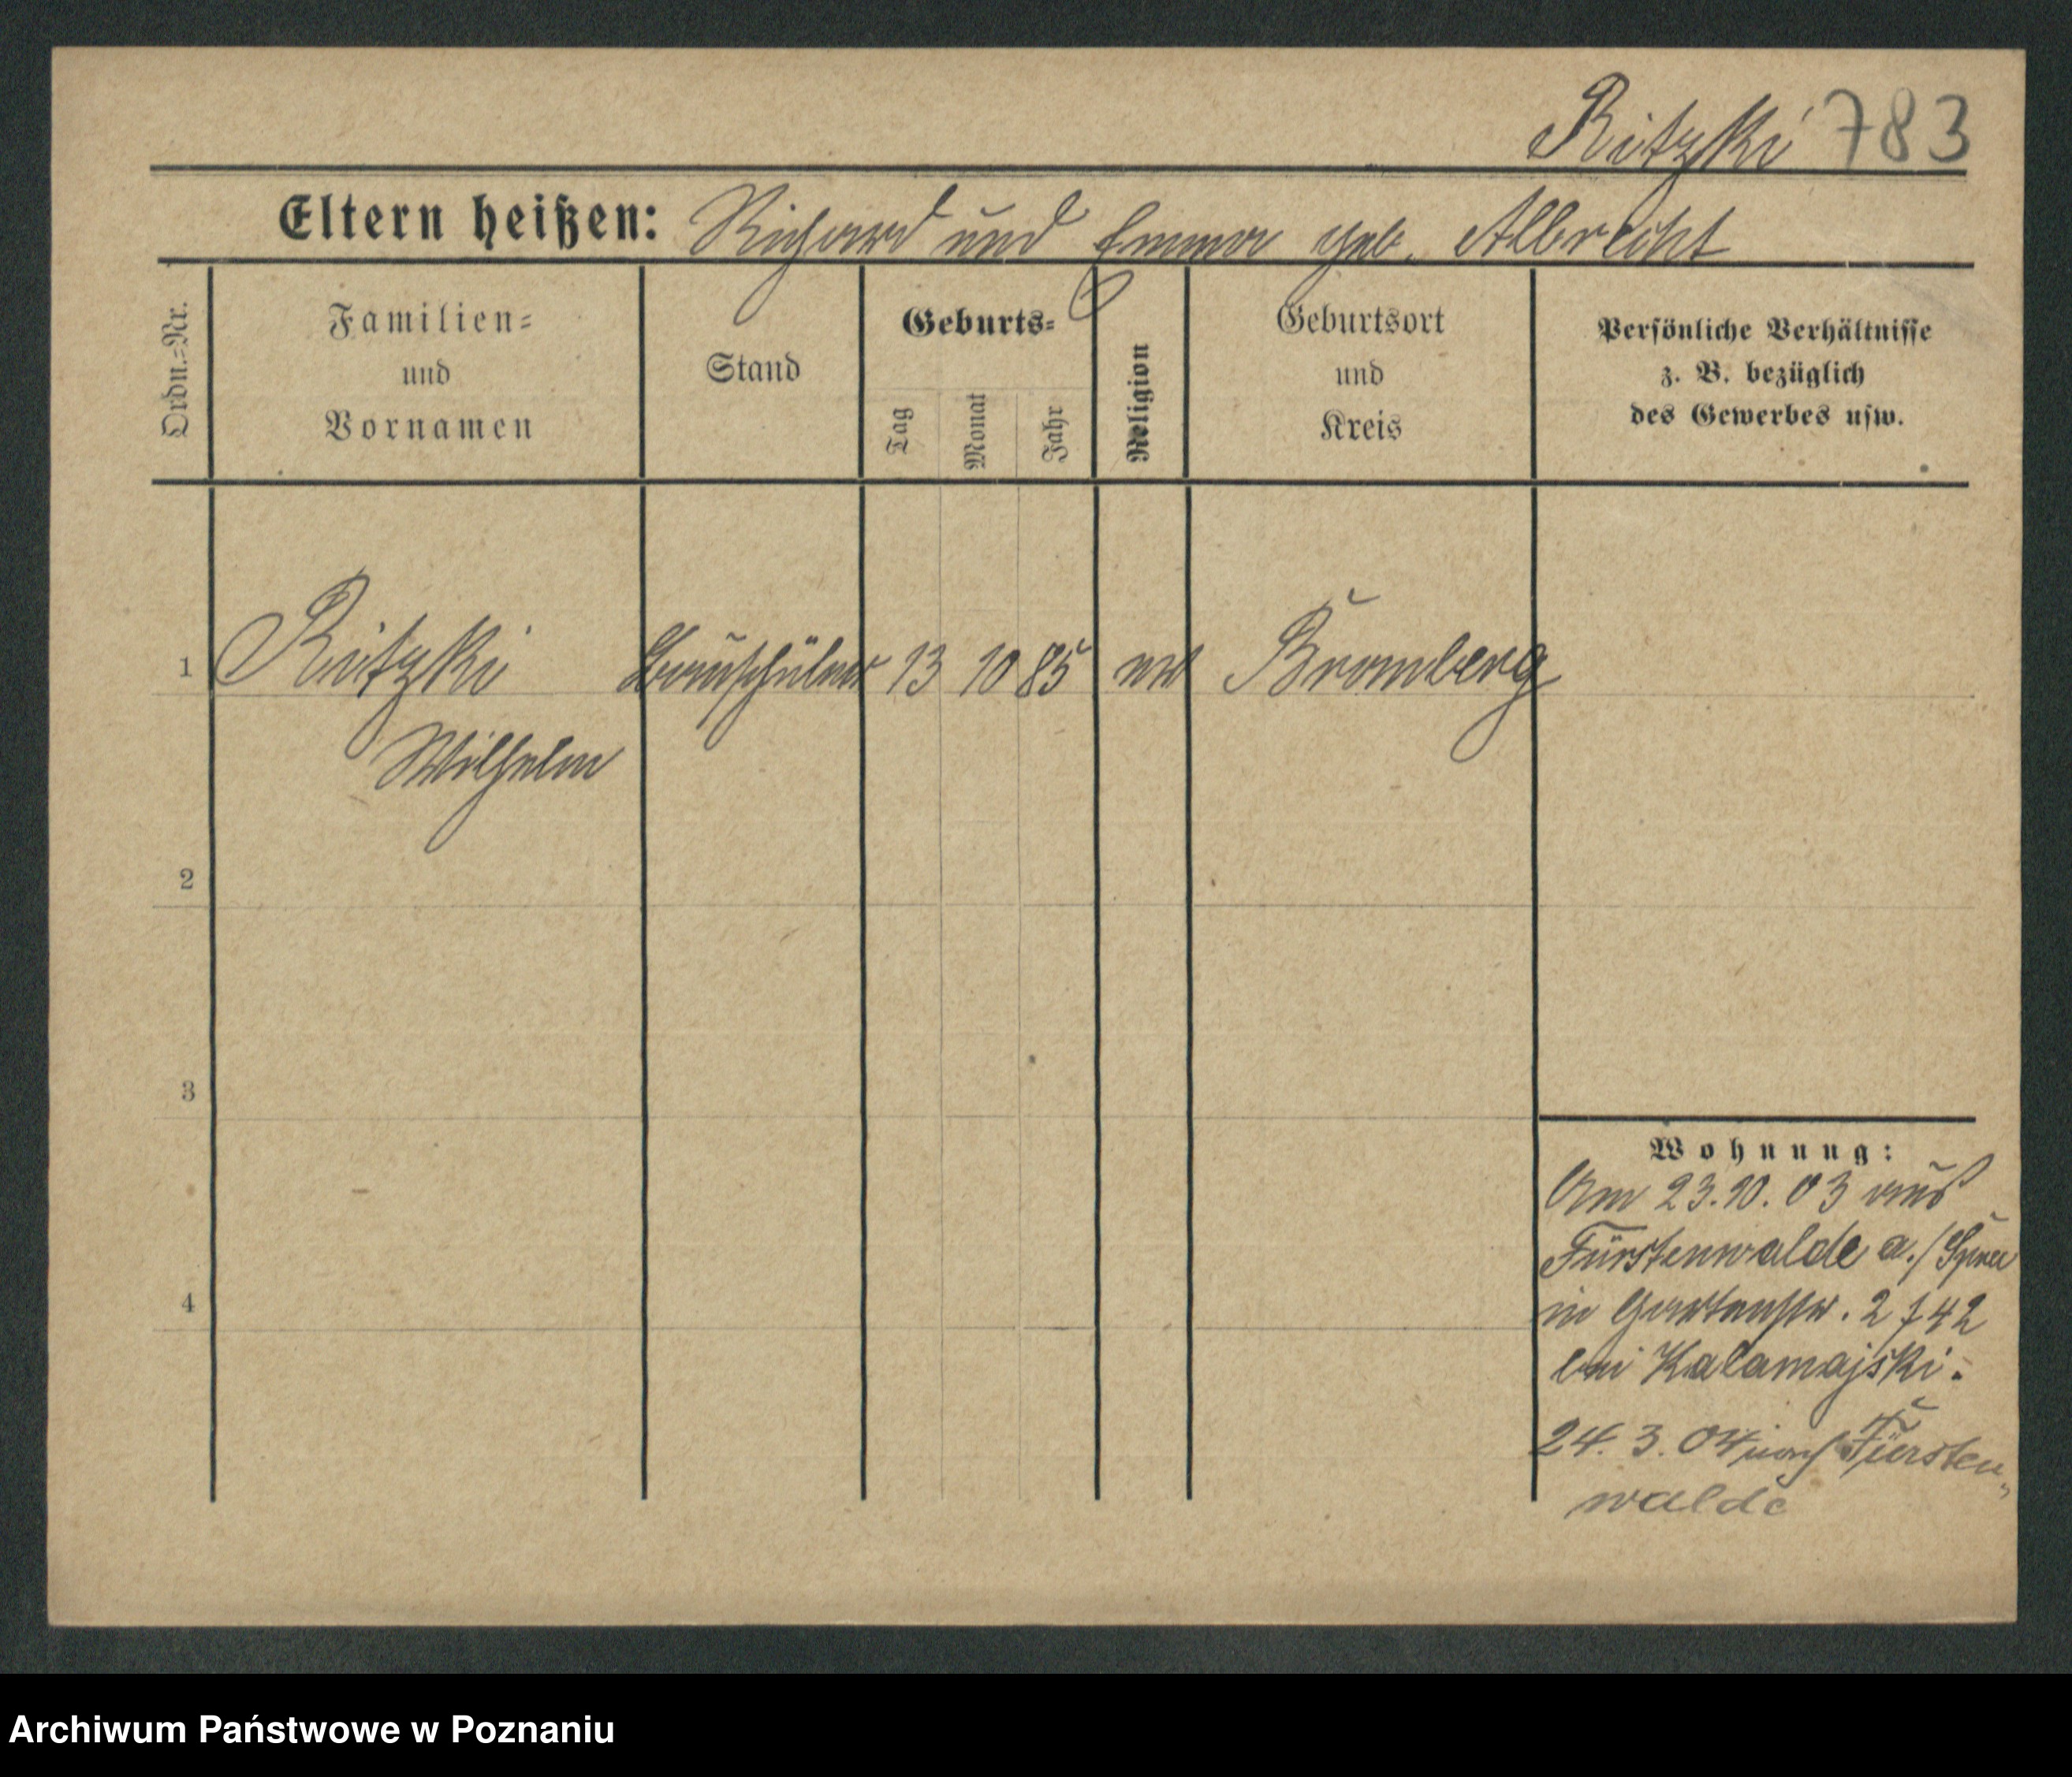 Ritzki 783
Eltern heißen: Richard und Emma geb. Albrecht
Ordn.=Nr.
Familien=
und
Vornamen
Stand
Geburts=
Tag
Monat
Jahr
Religion
Geburtsort
und
Kreis
Persönliche Verhältnisse
z. B. bezüglich
des Gewerbes usw.
1 Ritzki Bauschüler 13 10 85 ev Bromberg
Wilhelm
2
3
4
Wohnung:
Am 23.10.03 aus
Fürstenwalde a./Spree
in Gartenstr. 2
bei Kalamajski.
24.3.04 nach Fürsten-
walde
Archiwum Państwowe w Poznaniu